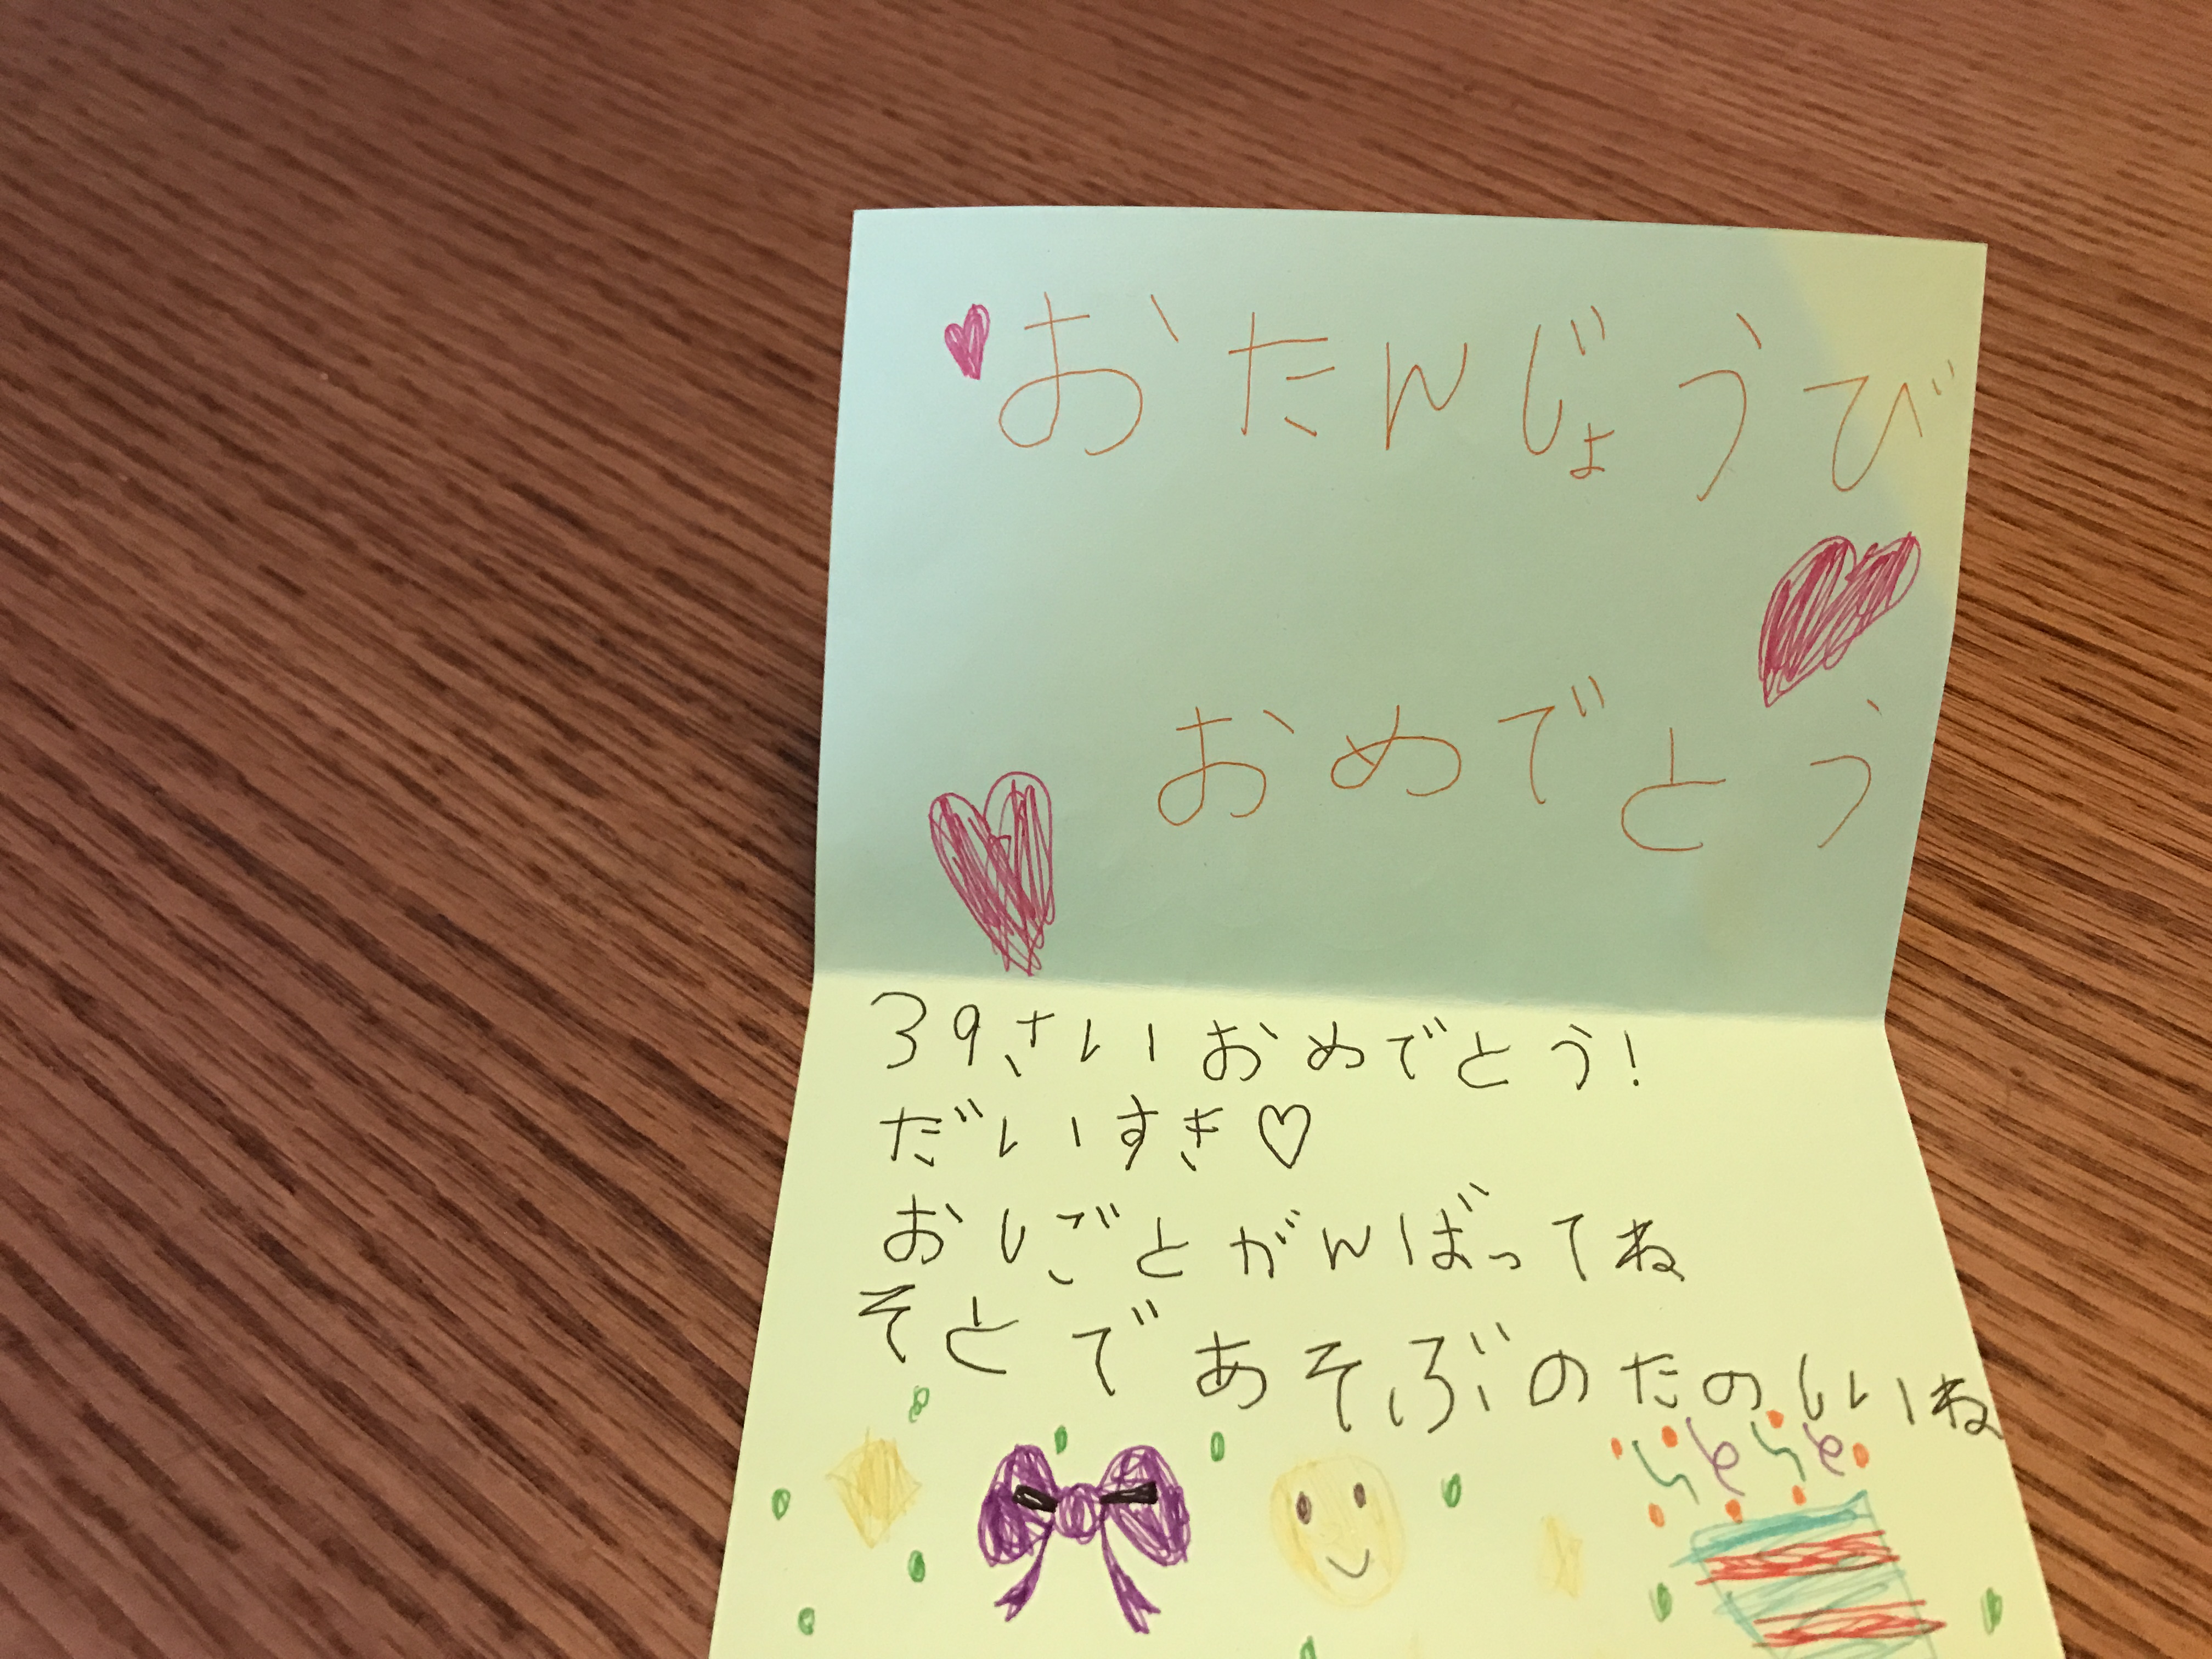 おたんじょうび
おめでとう
39さいおめでとう!
だいすき♡
おしごとがんばってね
そとであそぶのたのしいね